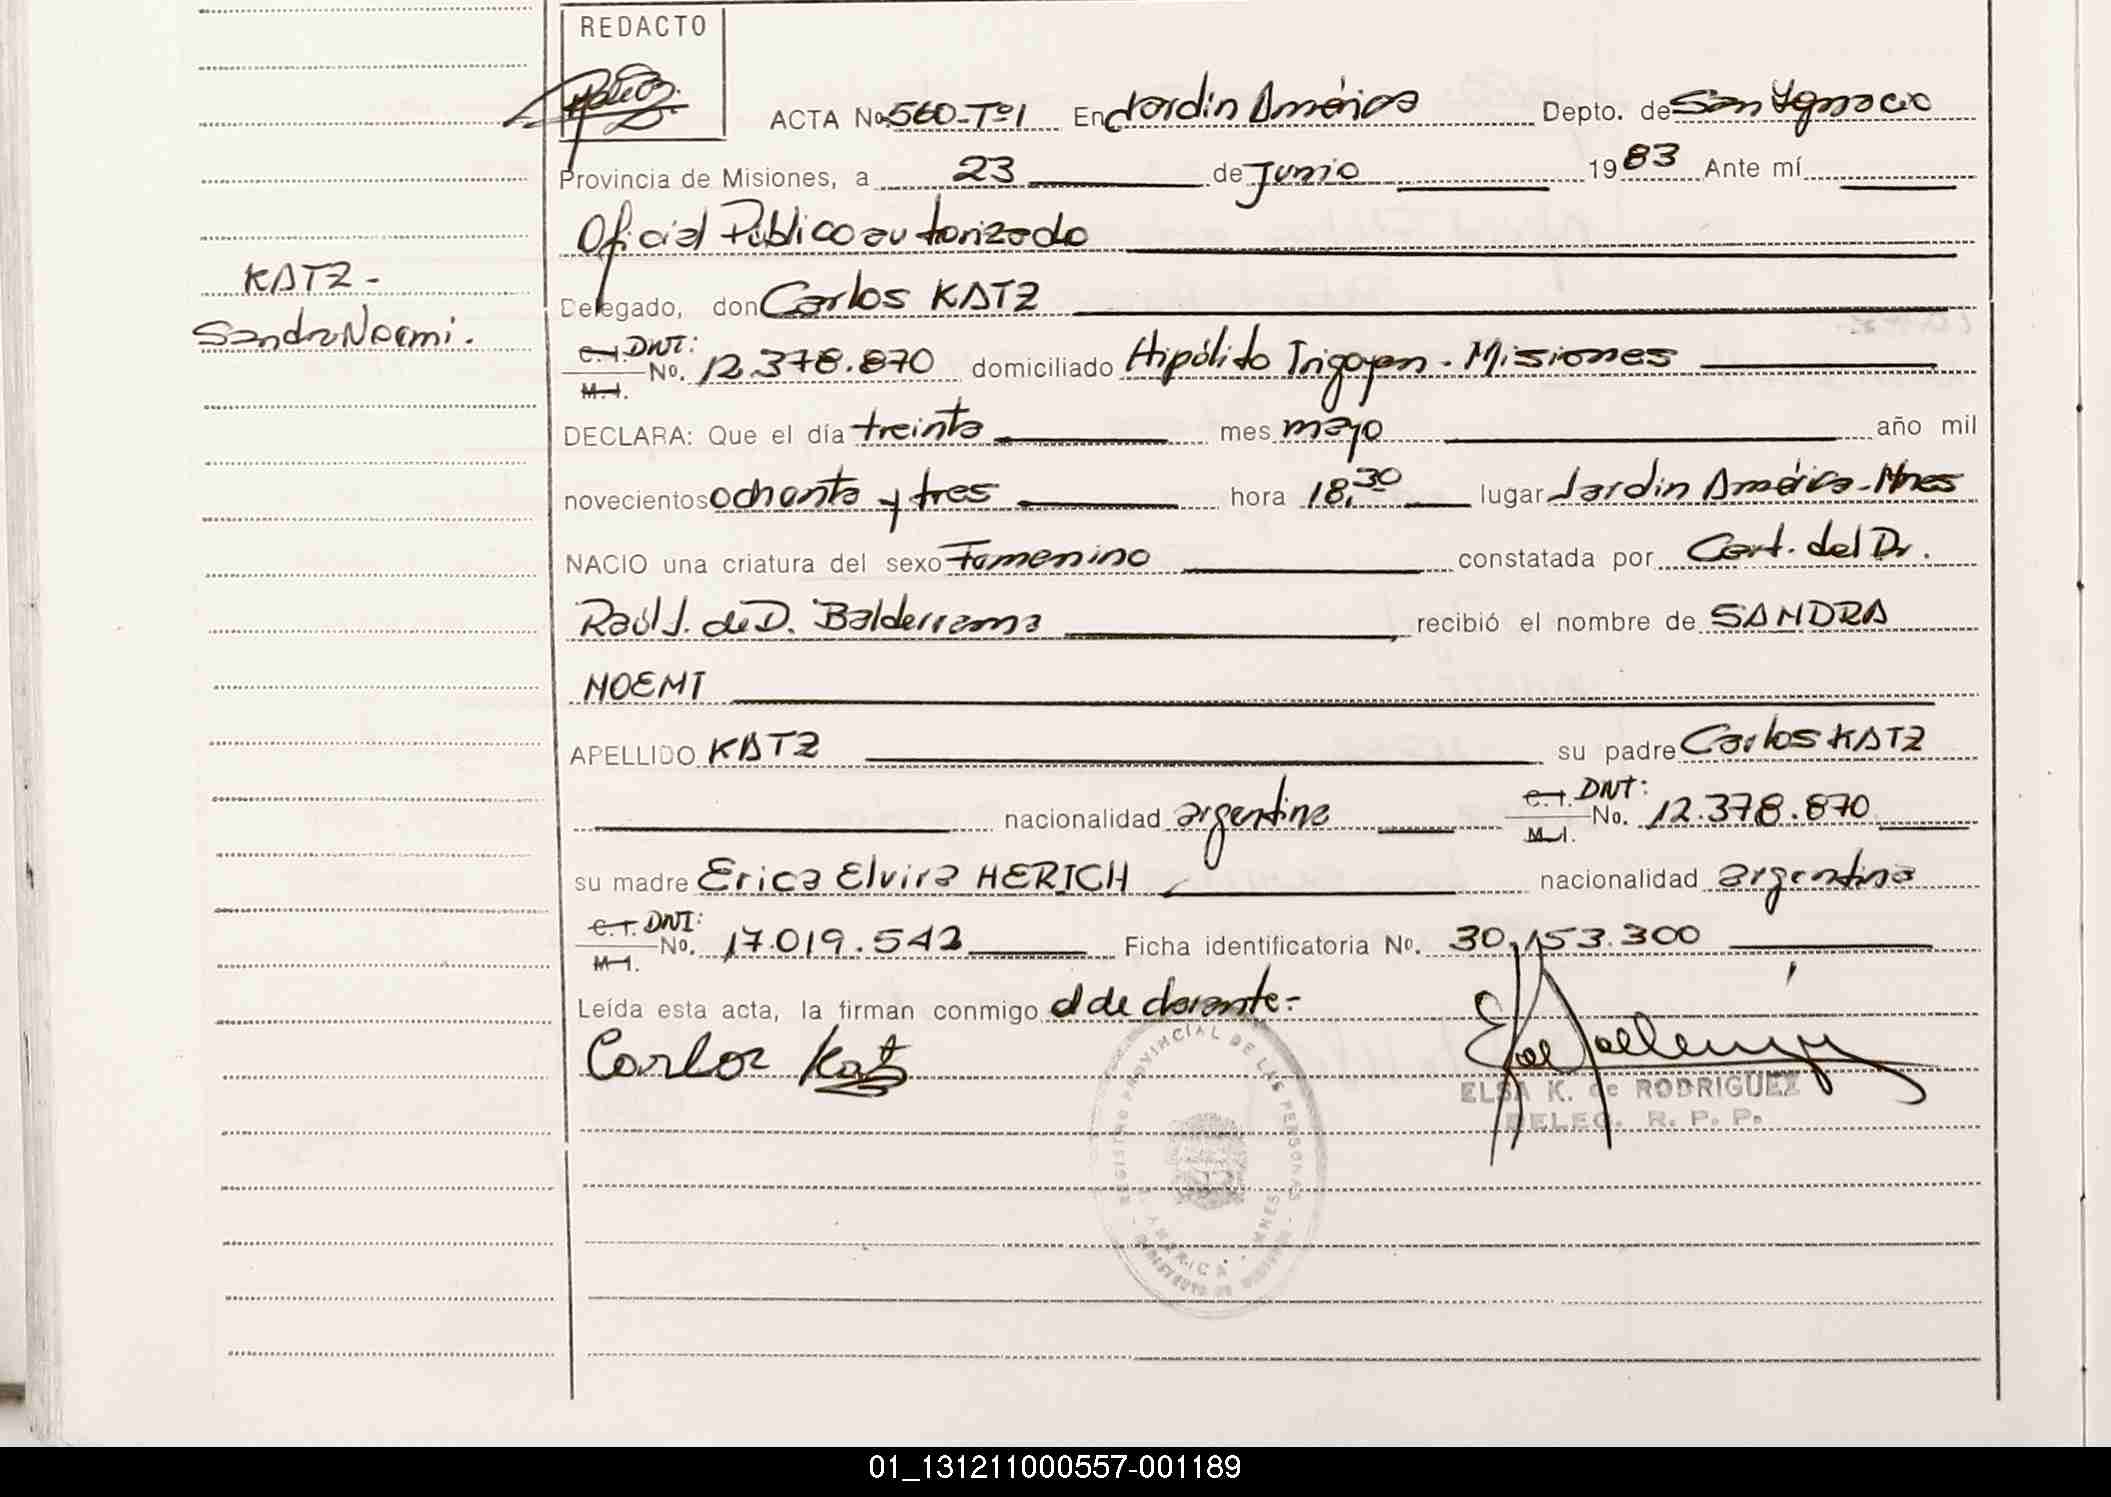 REDACTO
ACTA No. 560-Tº1 En Jardin América Depto. de San Ygnacio
Provincia de Misiones, a 23 de Junio 1983 Ante mí
Oficial Público autorizado
KATZ -
Delegado, don Carlos KATZ
Sandra Noemi.
C.I. DNI:
M.I. No. 12.378.870 domiciliado Hipólito Irigoyen - Misiones
DECLARA: Que el día treinta mes mayo año mil
novecientos ochenta y tres hora 18,30 lugar Jardin América - Mnes
NACIO una criatura del sexo Femenino constatada por Cert. del Dr.
Raúl J. de D. Balderrama recibió el nombre de SANDRA
NOEMI
APELLIDO KATZ su padre Carlos KATZ
nacionalidad argentina C.I. DNI: M.I. No. 12.378.870
su madre Erica Elvira HERICH nacionalidad argentina
C.I. DNI:
M.I. No. 17.019.542 Ficha identificatoria No. 30.153.300
Leída esta acta, la firman conmigo el declarante.-
Carlos Katz
ELSA K. de RODRIGUEZ
DELEG. R. P. P.
REGISTRO PROVINCIAL DE LAS PERSONAS
J. AMERICA - MNES
01_131211000557-001189